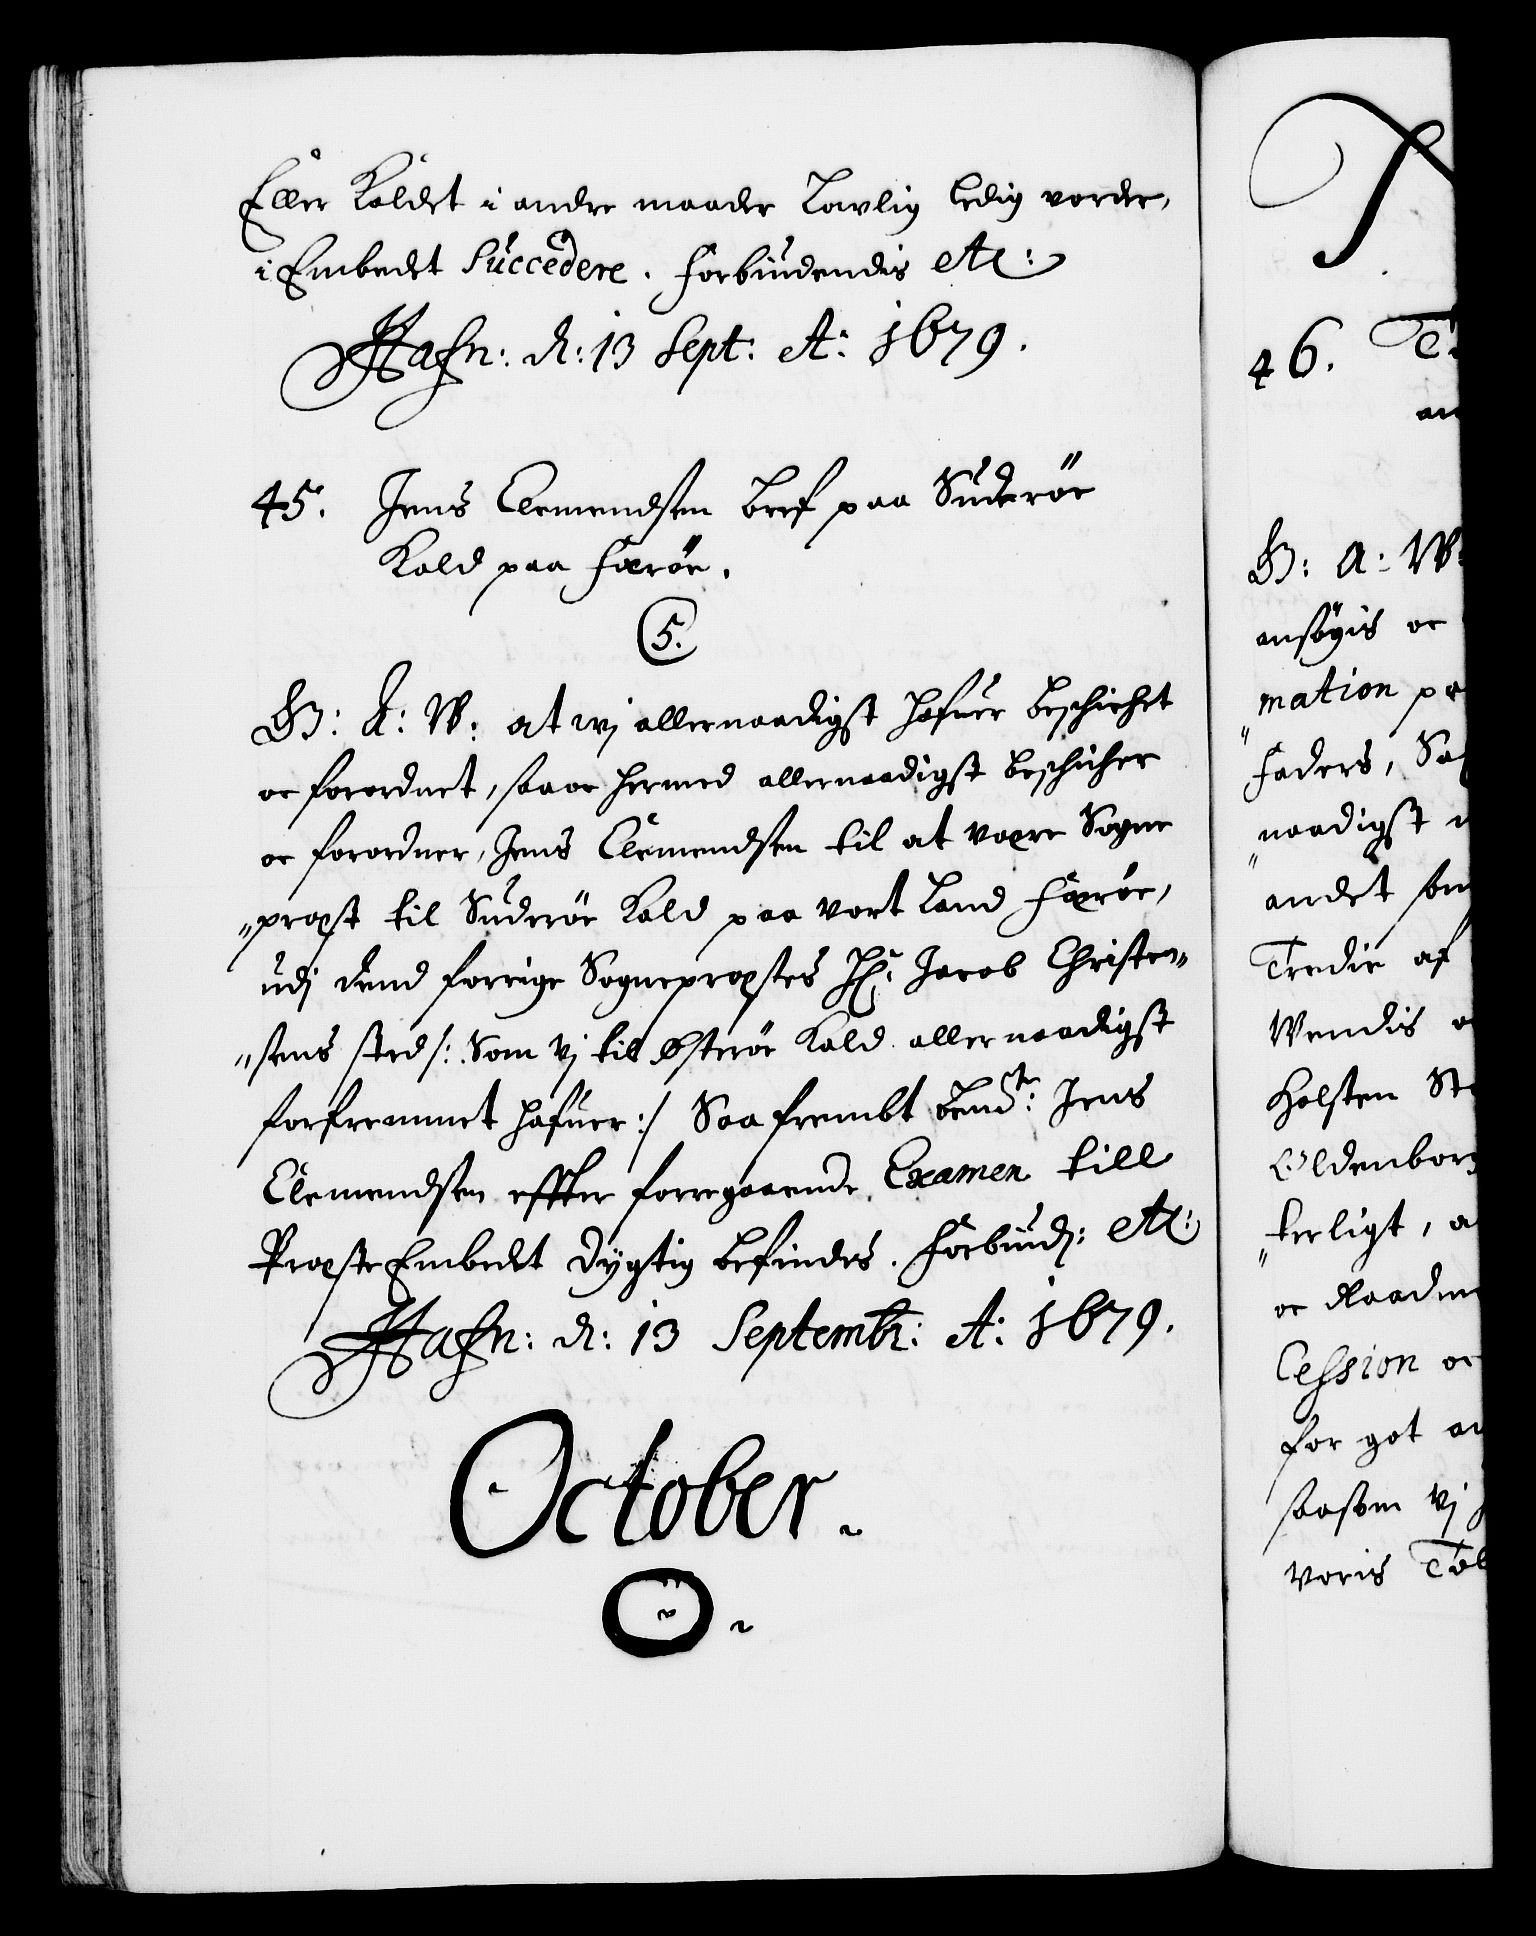 Eller Kaldet i andre maader Lovlig ledig vorder,
i Embedet Succedere. Forbiudendis etc:
Hafn: d: 13 Sept: Ao: 1679.
45. Jens Clemendsen bref paa Suderöe
Kald paa Færöe.
5.
G: A: W: at wj allernaadigst hafuer beschicket
oc forordnet, saa oc hermed allernaadigst beschicher
oc forordner, Jens Clemendsen til at være Sogne
"præst til Suderöe Kald paa vort Land Færöe,
udj dend forrige Sognepræstes Hr: Jacob Christen"
"sens sted /: Som vj til Østeröe Kald allernaadigst
forfremmet hafuer :/ Saa frembt bemte: Jens
Clemendsen effter forregaaende Examen till
Præste Embedet dygtig befindes. Forbiud: etc:
Hafn: d: 13 Septembr: Ao: 1679.
October.
O.
46. 
G: A: W:
ansögis oc
mation
"Faders,
"naadigst
andet som
Tredie af
Wendis
Holsten
Oldenborg
"terligt,
oc
Cession oc
for got
saasom vj
voris